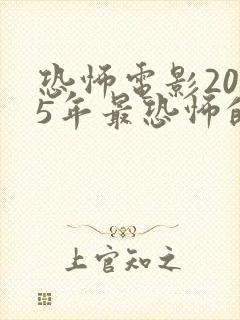 恐怖電影20
5年最恐怖的
上官知之